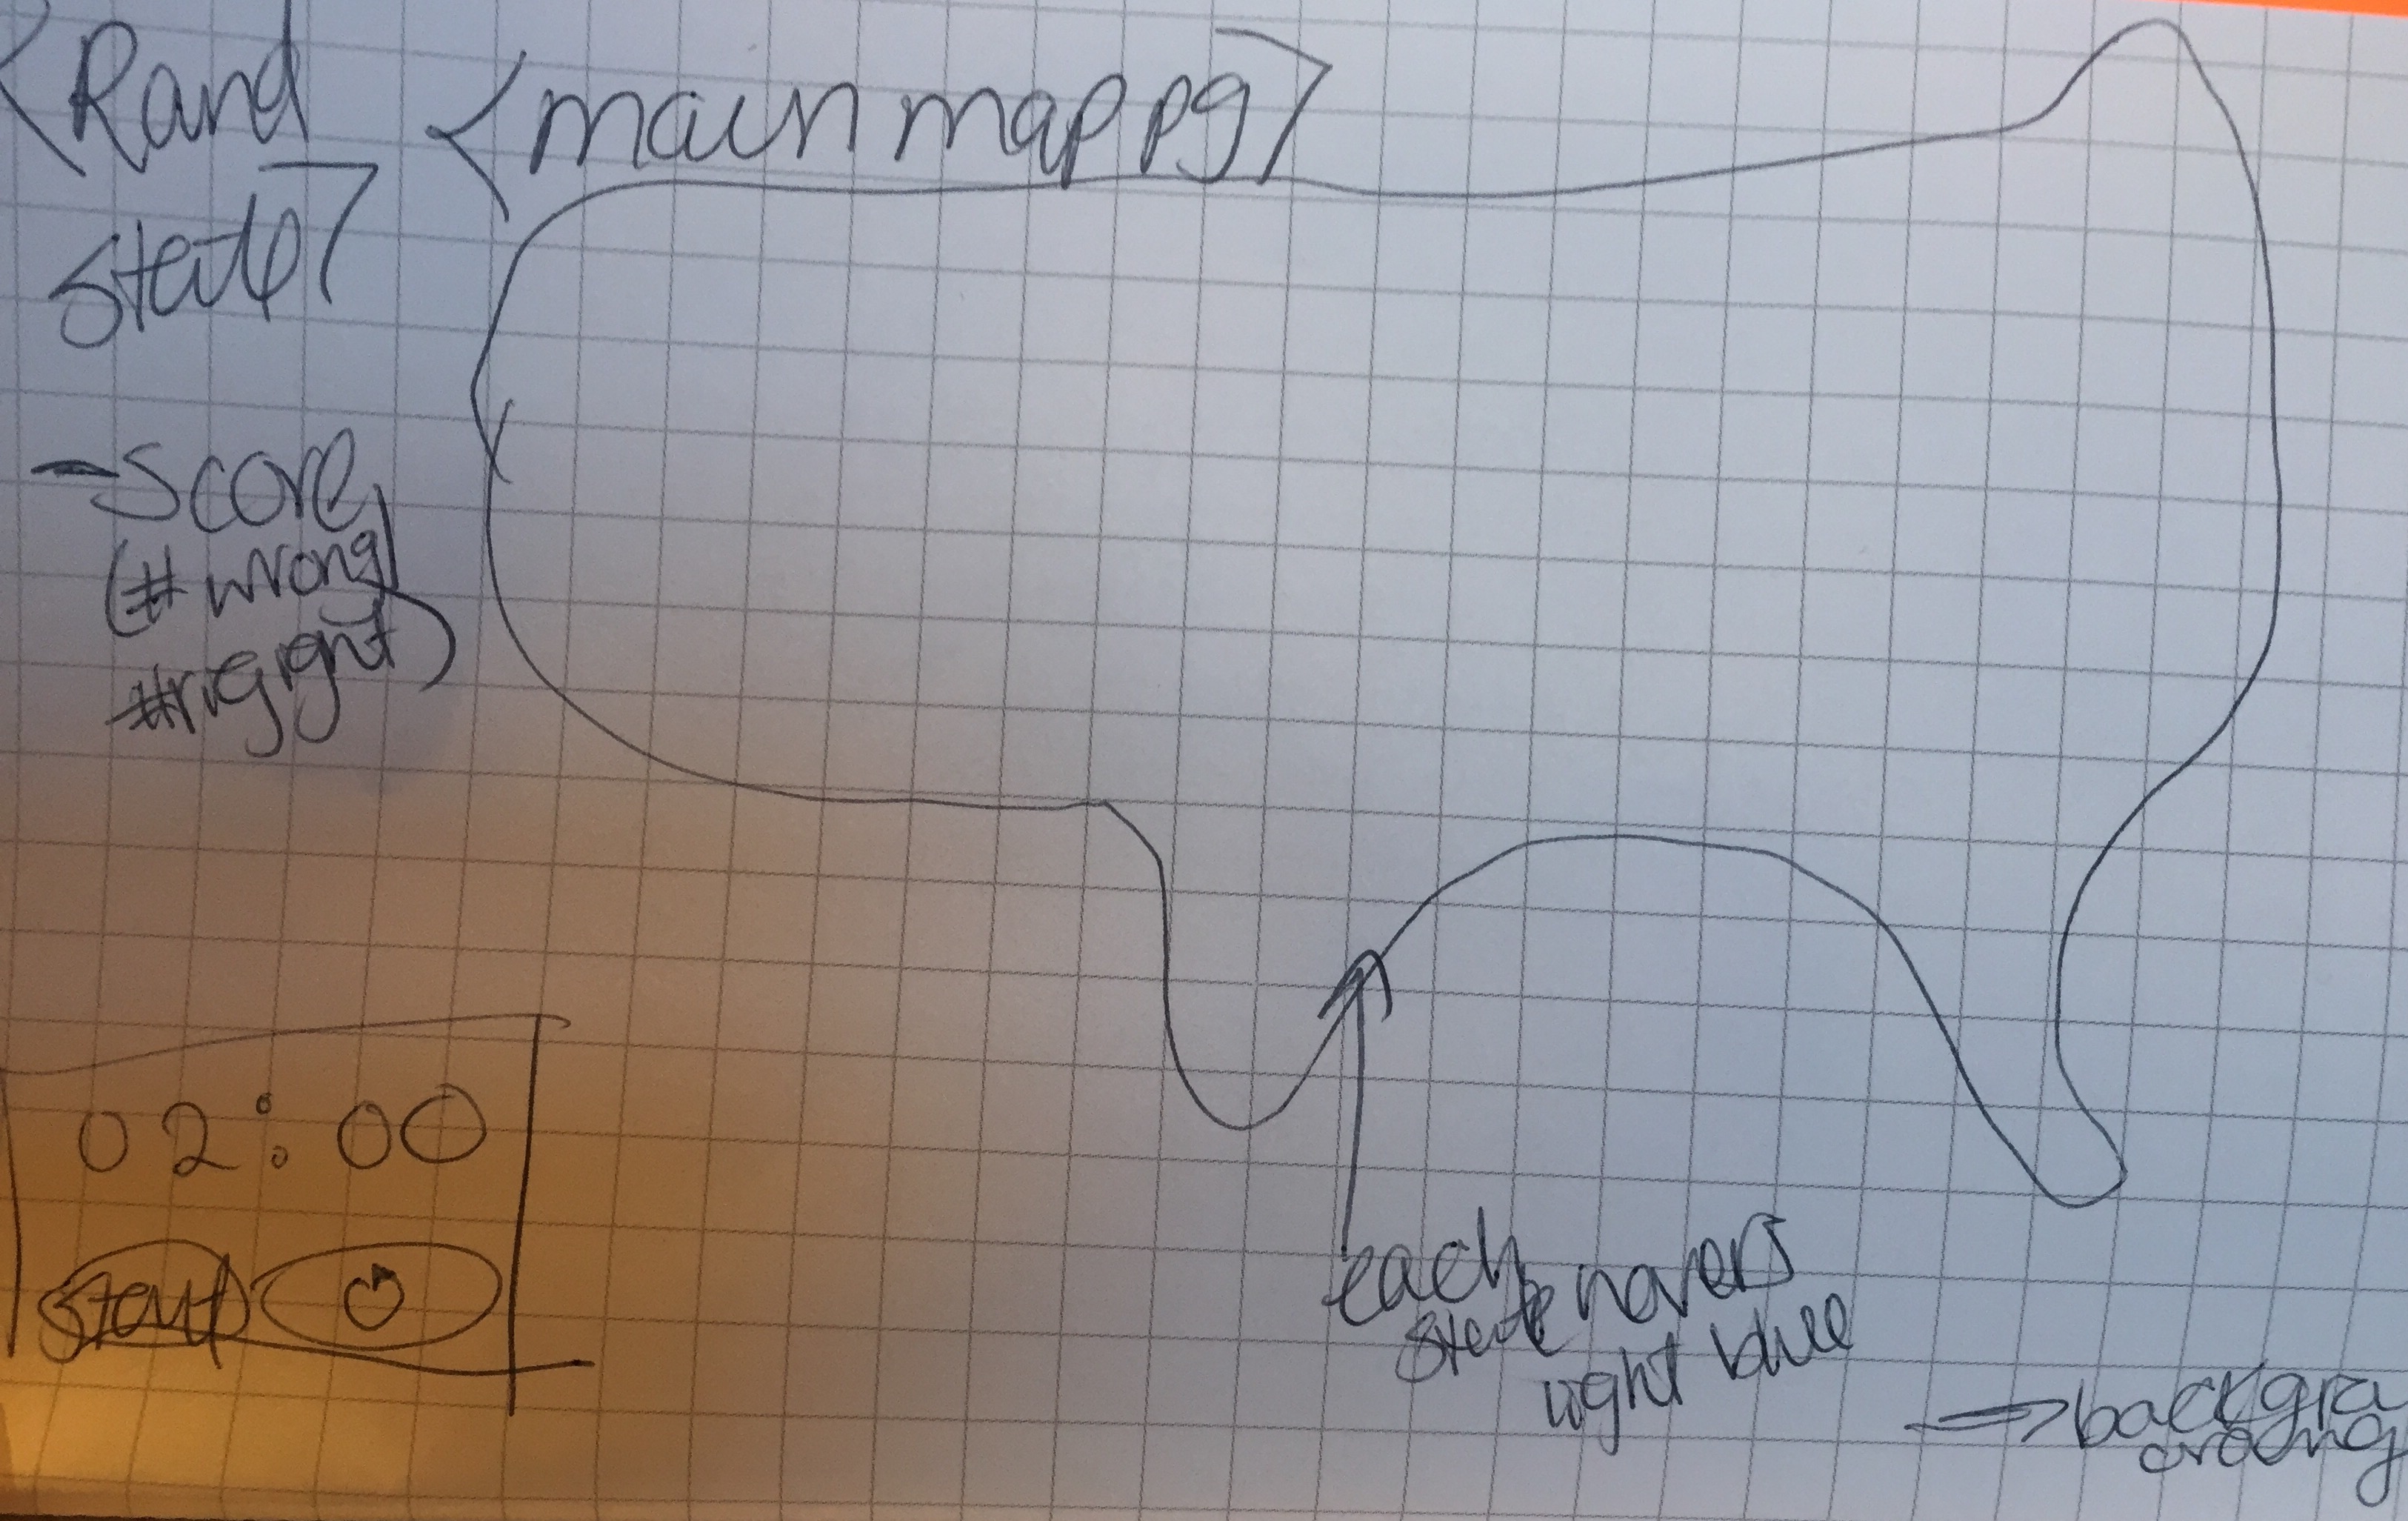 <Rand
State>
<main map pg>
- Score
(# wrong
# right)
02:00
Start
each
state hovers
light blue